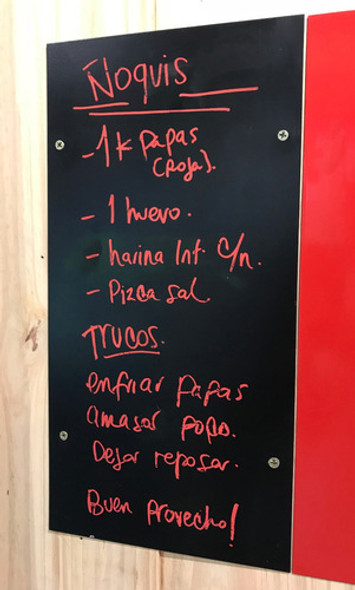 Ñoquis
- 1 K papas
(roja).
- 1 huevo.
- harina Int. c/n.
- Pizca sal.
Trucos.
enfriar papas
amasar poco.
Dejar reposar.
Buen Provecho!